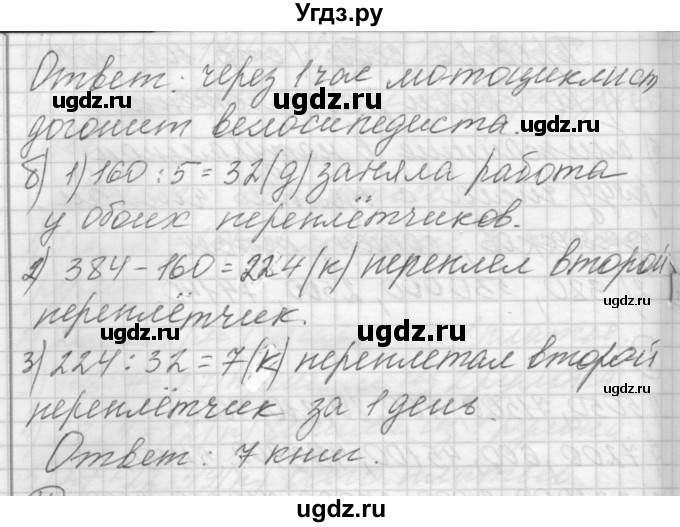 Угдз.ру
Ответ: через 1 час мотоциклист
догонит велосипедиста.
б) 1) 160 : 5 = 32 (д) заняла работа
у обоих переплётчиков.
2) 384 - 160 = 224 (к) переплел второй
переплётчик.
3) 224 : 32 = 7 (к) переплетал второй
переплётчик за 1 день.
Ответ: 7 книг.
ugdz.ru
ugdz.ru
ugdz.ru
ugdz.ru
ugdz.ru
ugdz.ru
ugdz.ru
ugdz.ru
ugdz.ru